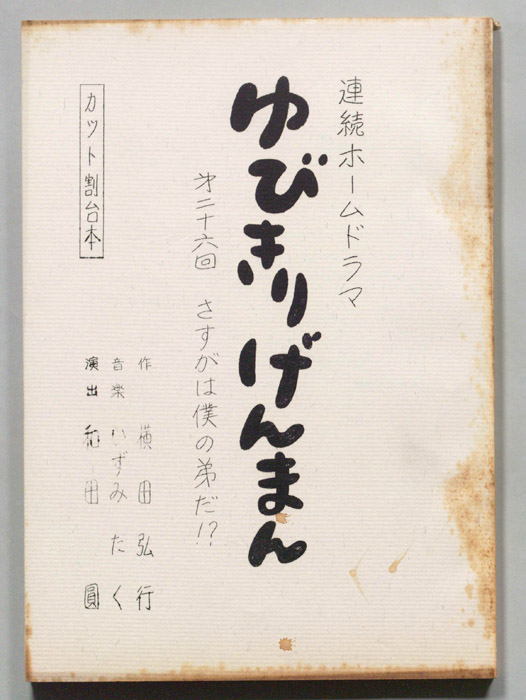 連続ホームドラマ
ゆびきりげんまん
第二十六回 さすがは僕の弟だ!?
作 横田弘行
音楽 いずみたく
演出 和田圓
カット割台本